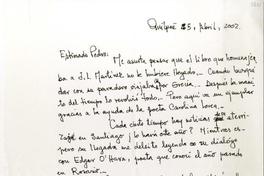 Quilpué 25, Abril, 2002.
Estimado Pedro: Me asusta pensar que el libro que homenajea
ba a J.L. Martínez no te hubiere llegado.
dar con su paradero viajaba por Grecia. Después la maci
del tiempo lo revolvió todo. Para aquí un ejemplar
gracias a la ayuda de la poeta Carolina Lorca.
Cada cierto tiempo hay noticias
en Santiago ¿lo hará este año? Mientras es
su llegada me deleité leyendo en su diálogo
con Edgar O'Hara, poeta que conocí el año pasado
en Rosario.